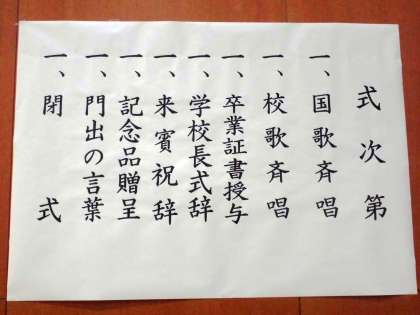 式次第
一、国歌斉唱
一、校歌斉唱
一、卒業証書授与
一、学校長式辞
一、来賓祝辞
一、記念品贈呈
一、門出の言葉
一、閉式